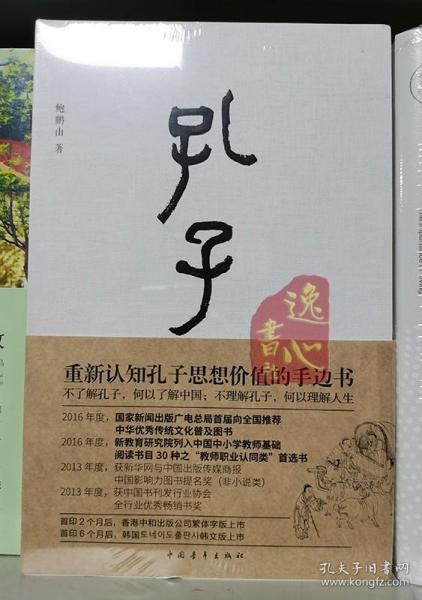 鲍鹏山 著
孔子
逸心
書社
重新认知孔子思想价值的手边书
不了解孔子，何以了解中国；不理解孔子，何以理解人生
2016 年度，国家新闻出版广电总局首届向全国推荐
中华优秀传统文化普及图书
2016 年度，新教育研究院列入中国中小学教师基础
阅读书目 30 种之“教师职业认同类”首选书
2013 年度，获新华网与中国出版传媒商报
中国影响力图书提名奖（非小说类）
2013 年度，获中国书刊发行业协会
全行业优秀畅销书奖
首印 2 个月后，香港中和出版公司繁体字版上市
首印 6 个月后，韩国토네이도출판사韩文版上市
中国青年出版社
孔夫子旧书网
www.kongfz.com